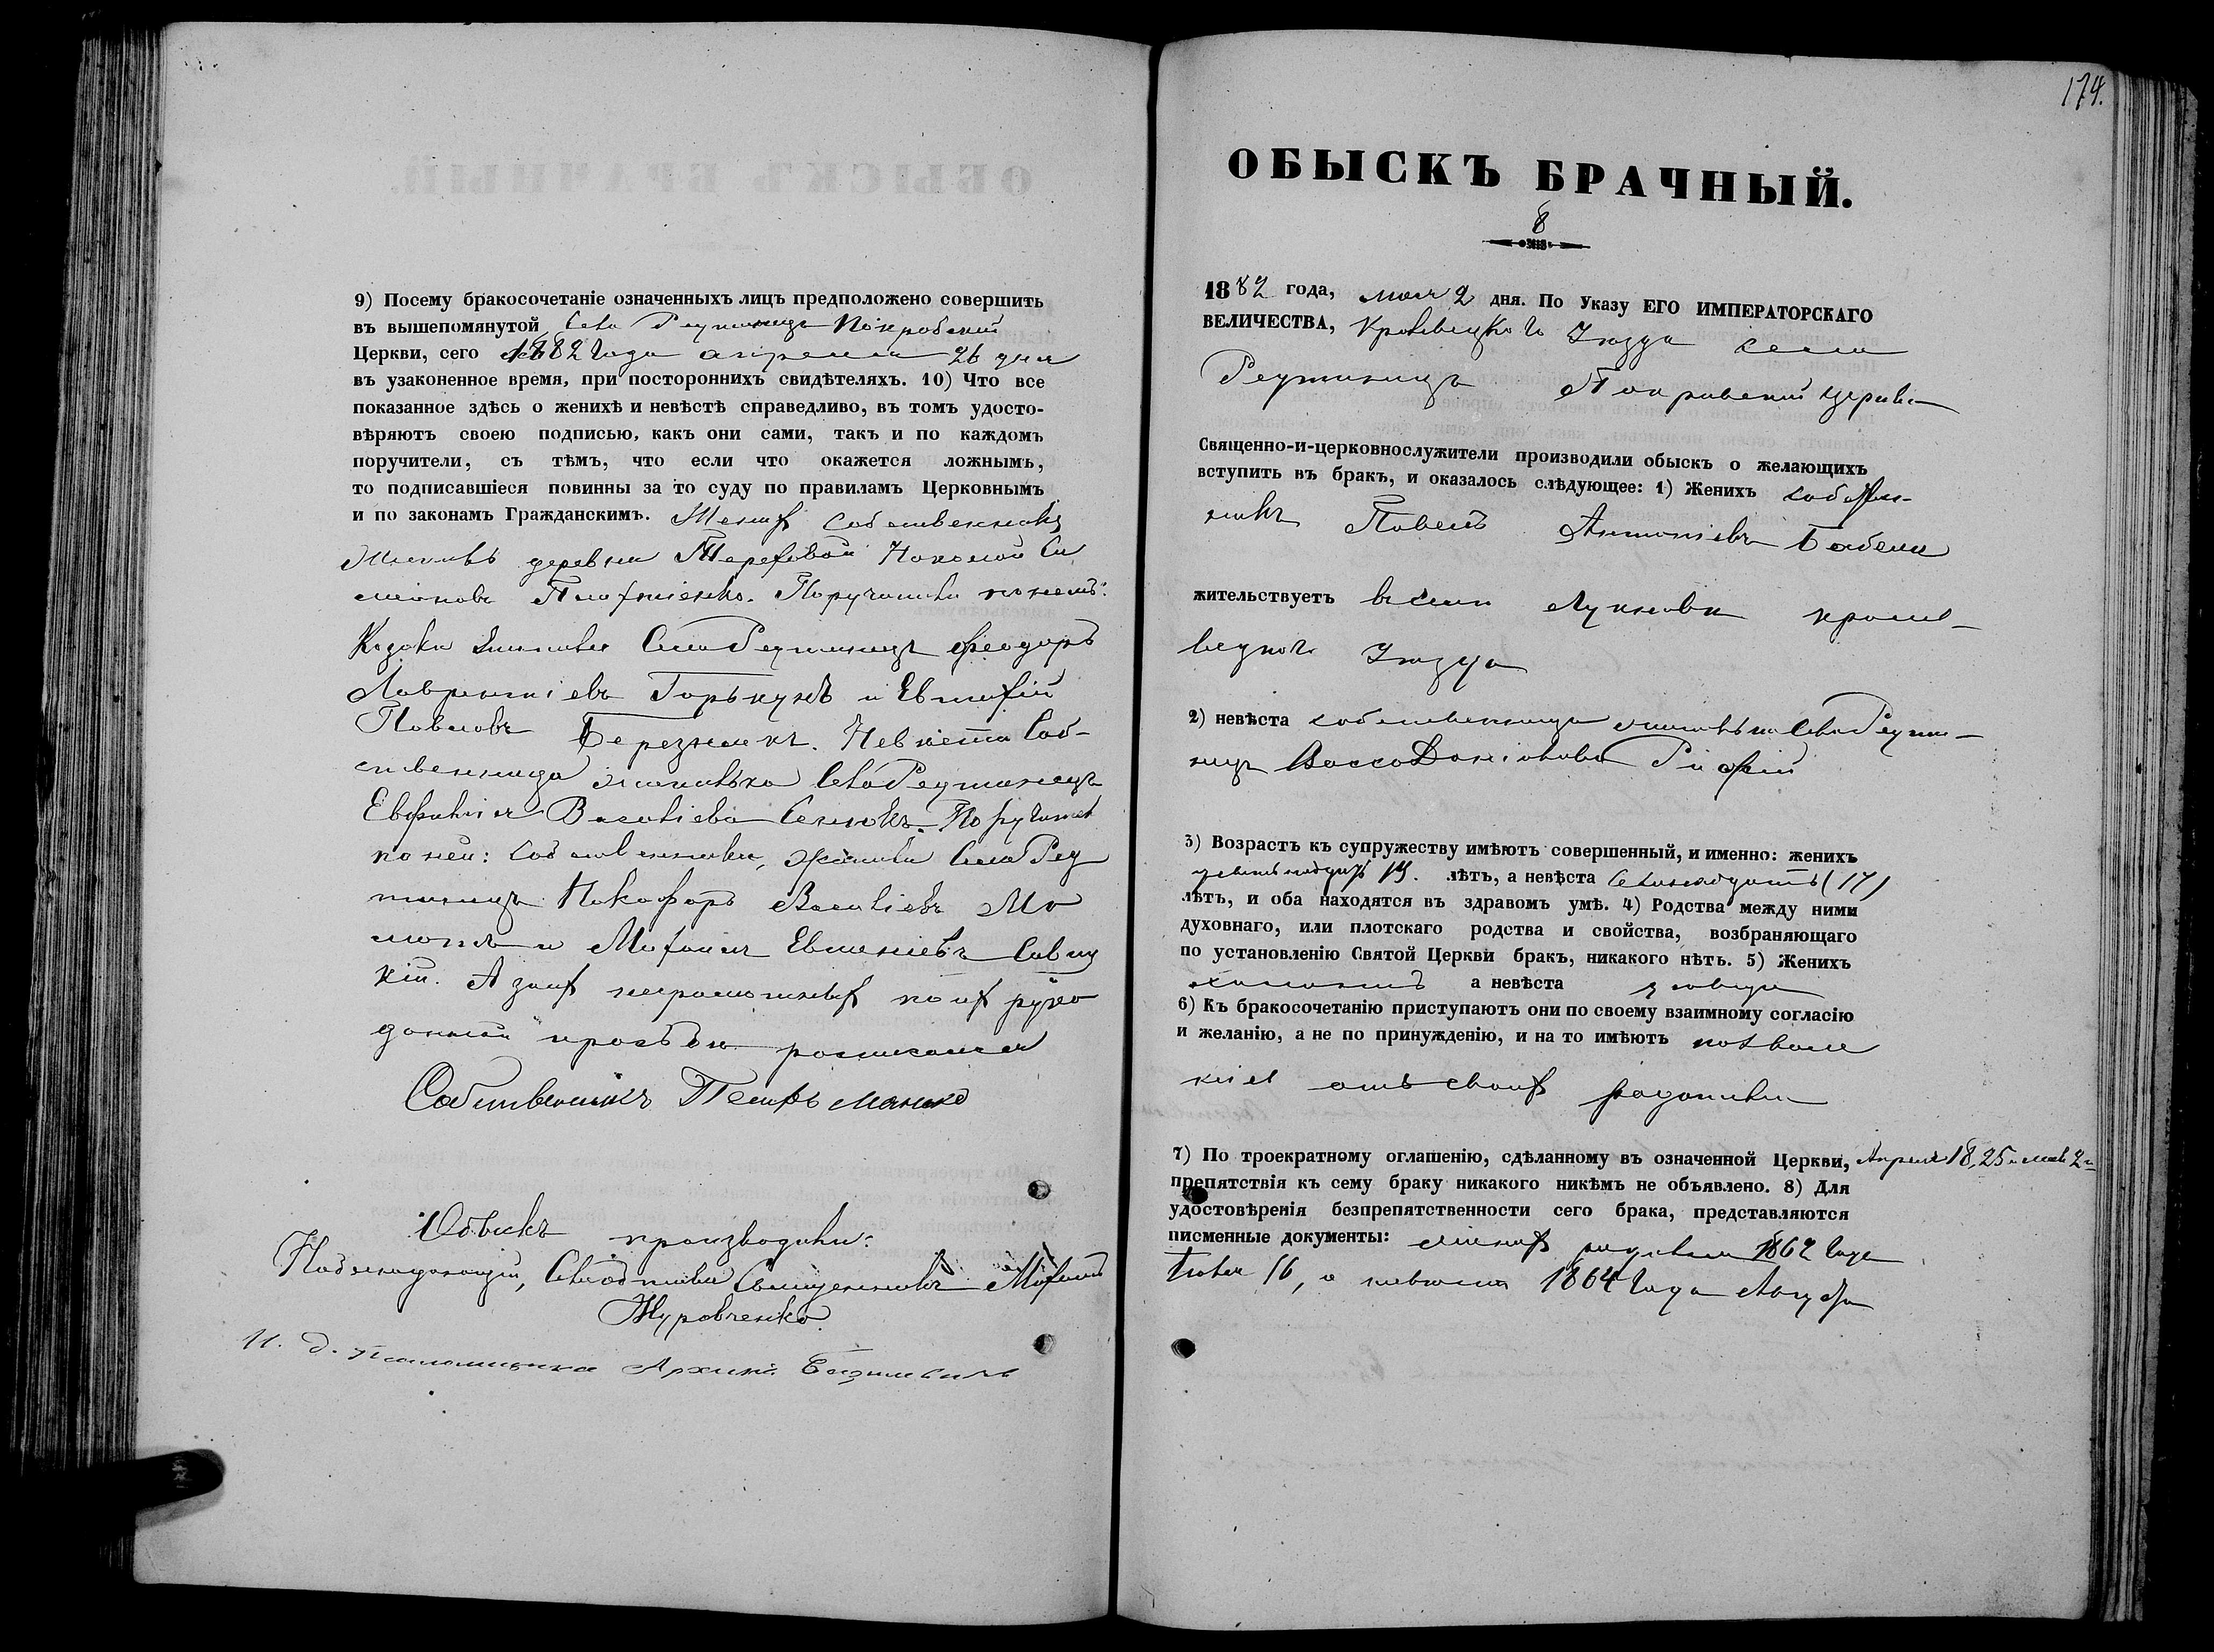 9) Посему бракосочетаніе означенныхъ лицъ предположено совершить
въ вышепомянутой Села Реутинецъ Покровской
Церкви, сего 1882 года апреля 26 дня
въ узаконенное время, при постороннихъ свидѣтеляхъ. 10) Что все
показанное здѣсь о женихѣ и невѣстѣ справедливо, въ томъ удосто-
вѣряютъ своею подписью, какъ они сами, такъ и по каждомъ
поручители, съ тѣмъ, что если что окажется ложнымъ,
то подписавшіеся повинны за то суду по правиламъ Церковнымъ
и по законамъ Гражданскимъ. Женихъ собственникъ
деревни
Поручители по немъ:
Козаки Села Реутинецъ Феодоръ
Лаврентіевъ Горькунъ и Евтихій
Павловъ Березнякъ. Невѣста Соб-
ственница Села Реутинецъ
Васильева Поручители
по ней: собственники, жители Села Реу
тинецъ Никифоръ Васильевъ
и Михаилъ Савиц
кій. А за ихъ по ихъ руко
данной прозьбѣ росписался
Собственникъ Петръ Манько
Обыскъ производили:
Священникъ
Журовченко
И. д. псаломщика Архипъ
174.
ОБЫСКЪ БРАЧНЫЙ.
8
1882 года, мая 2 дня. По Указу ЕГО ИМПЕРАТОРСКАГО
ВЕЛИЧЕСТВА, Кролевецкого Уѣзда села
Реутинецъ Покровской церкви
Священно-и-церковнослужители производили обыскъ о желающихъ
вступить въ бракъ, и оказалось слѣдующее: 1) Женихъ собствен-
никъ Павелъ Антоніевъ Бабека
жительствуетъ въ селѣ Лукновѣ кроле-
вецкого Уѣзда
2) невѣста собственница Села Реути-
нецъ Васса
3) Возрастъ къ супружеству имѣютъ совершенный, и именно: женихъ
19. лѣтъ, а невѣста семнадцать (17)
лѣтъ, и оба находятся въ здравомъ умѣ. 4) Родства между ними
духовнаго, или плотскаго родства и свойства, возбраняющаго
по установленію Святой Церкви бракъ, никакого нѣтъ. 5) Женихъ
холостъ а невѣста девица
6) Къ бракосочетанію приступаютъ они по своему взаимному согласію
и желанію, а не по принужденію, и на то имѣютъ позволе
ніе отъ своихъ родителей
7) По троекратному оглашенію, сдѣланному въ означенной Церкви, Апреля 18, 25 и мая 2
препятствія къ сему браку никакого никѣмъ не объявлено. 8) Для
удостовѣренія безпрепятственности сего брака, представляются
писменные документы: женихъ родився 1862 года
16, а невѣста 1864 года Августа